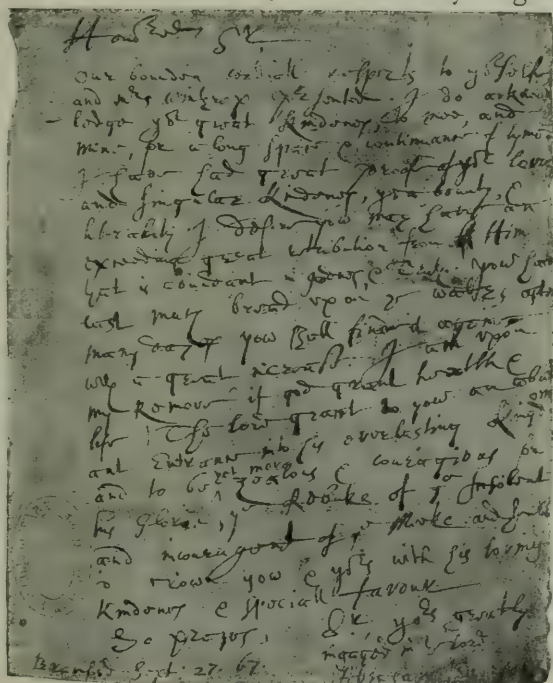 Honrd Sr,
Our bounden cordiall respects to yorselfe
and mrs presented. I do acknow
ledge yor great kindenes, to mee, and
mine, for a long space & continuance of tyme
I have had great proof of yor love
and singular kindenes, yea bounty, &
liberality I desire you may have an
exceeding great retribution from Him
that is abundant in goodnes, & You have
cast much bread upon ye waters after
many dayes you shall find it againe
with a great increase. I am upon
my Remove if god grant health &
life The lord grant to you an abund
ant Entrance into his everlasting kingdom
and to bee yet more zealous & couragious for
his Glorie, ye Rebuke of ye Insolent
and incouragemt of ye Meke and humble
& crown you & yors with his loving
kindenes & speciall favour
So prayes, Sr, yors greatly
ingaged in ye lord
Sept. 27. 67.